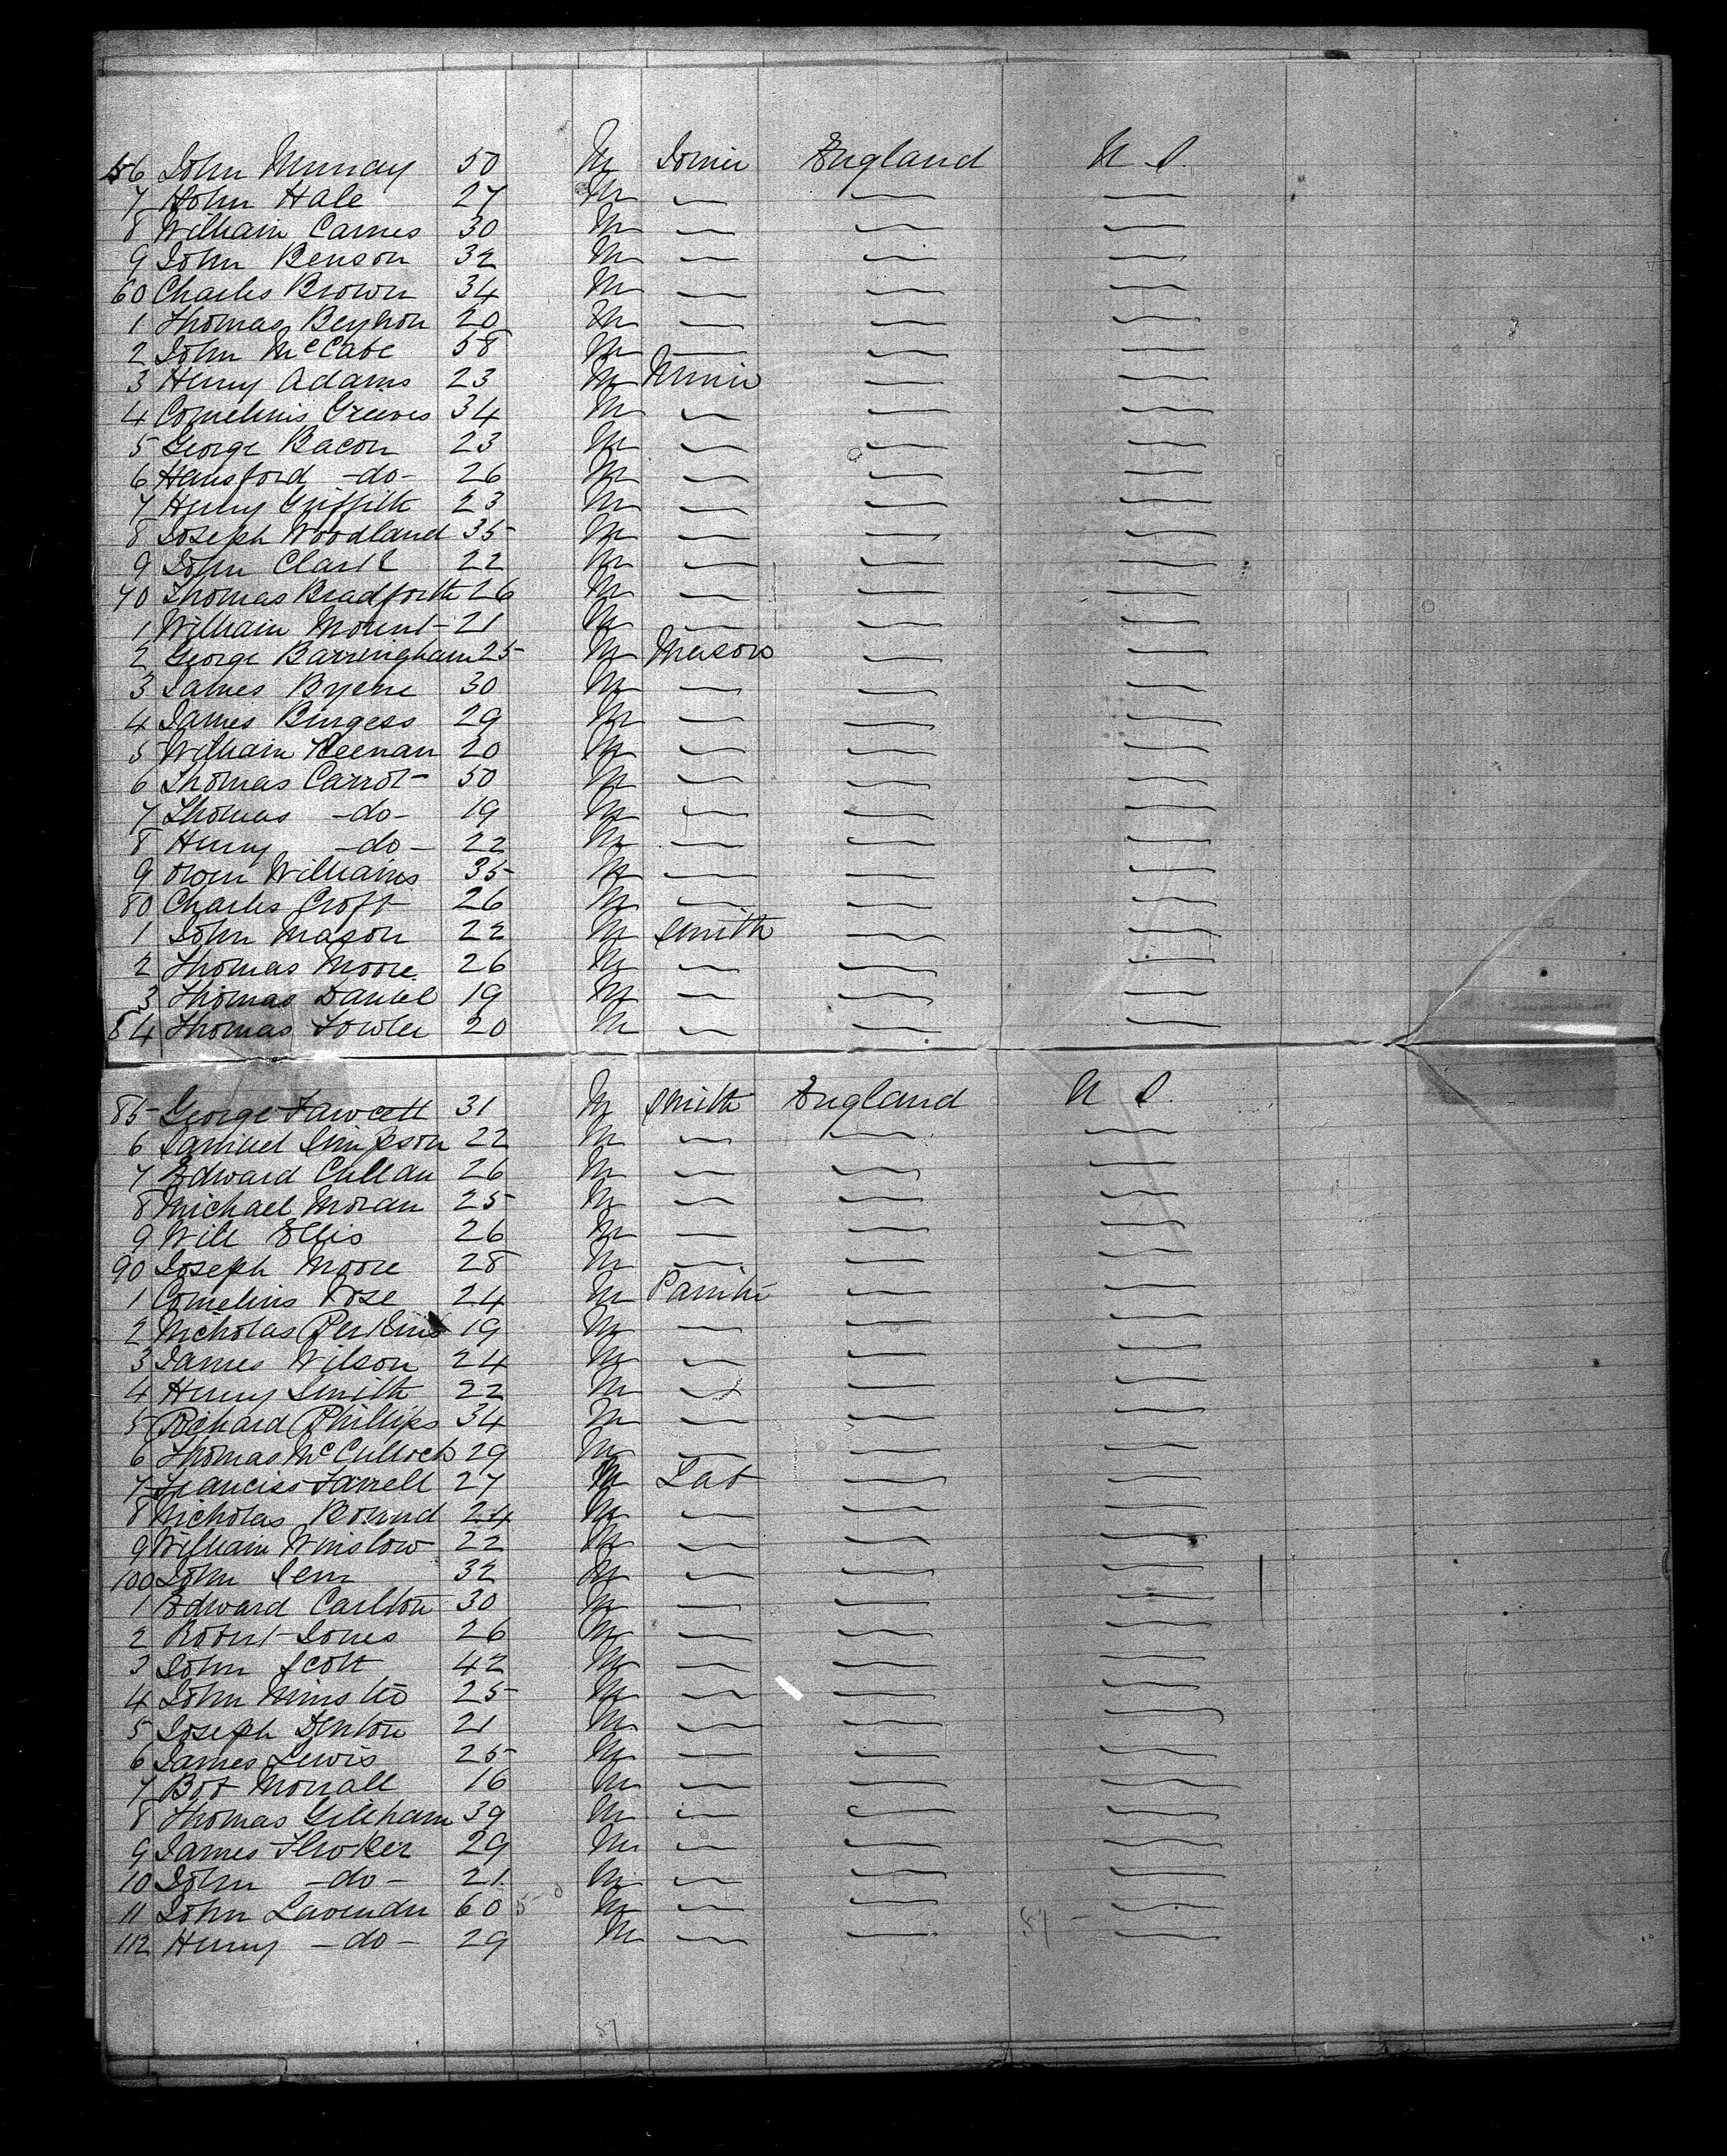 56 John Murray 50 M Joiner England U S.
7 John Hale 27 M — — —
8 William Carnes 30 M — — —
9 John Benson 32 M — — —
60 Charles Brown 34 M — — —
1 Thomas Beynon 20 M — — —
2 John McCabe 58 M — — —
3 Henry Adams 23 M Miner — —
4 Cornelius Greeves 34 M — — —
5 George Bacon 23 M — — —
6 Hansford -do- 26 M — — —
7 Henry Griffith 23 M — — —
8 Joseph Woodland 35 M — — —
9 John Clark 22 M — — —
70 Thomas Bradforth 26 M — — —
1 William Mount 21 M — — —
2 George Barringham 25 M Mason — —
3 James Byrne 30 M — — —
4 James Burgess 29 M — — —
5 William Keenan 20 M — — —
6 Thomas Carrot 50 M — — —
7 Thomas -do- 19 M — — —
8 Henry -do- 22 M — — —
9 Owen Williams 35 M — — —
80 Charles Croft 26 M — — —
1 John Mason 22 M Smith — —
2 Thomas Moore 26 M — — —
3 Thomas Daniel 19 M — — —
84 Thomas Fowler 20 M — — —
85 George Fawcett 31 M Smith England U S.
6 Samuel Simpson 22 M — — —
7 Edward Cullan 26 M — — —
8 Michael Moran 25 M — — —
9 Will Ellis 26 M — — —
90 Joseph Moore 28 M — — —
1 Cornelius Rose 24 M Painter — —
2 Nicholas Perkins 19 M — — —
3 James Wilson 24 M — — —
4 Henry Smith 22 M — — —
5 Richard Phillips 34 M — — —
6 Thomas McCulloch 29 M — — —
7 Franciss Farrell 27 M Lab — —
8 Nicholas Bound 24 M — — —
9 William Winslow 22 M — — —
100 John 32 M — — —
1 Edward Carlton 30 M — — —
2 Robert Jones 26 M — — —
3 John Scott 42 M — — —
4 John 25 M — — —
5 Joseph Denton 21 M — — —
6 James Lewis 25 M — — —
7 Bot Morrall 16 M — — —
8 Thomas Gilkham 39 M — — —
9 James 29 M — — —
10 John -do- 21 M — — —
11 John Lavender 60 M — — —
112 Henry -do- 29 M — — —
57